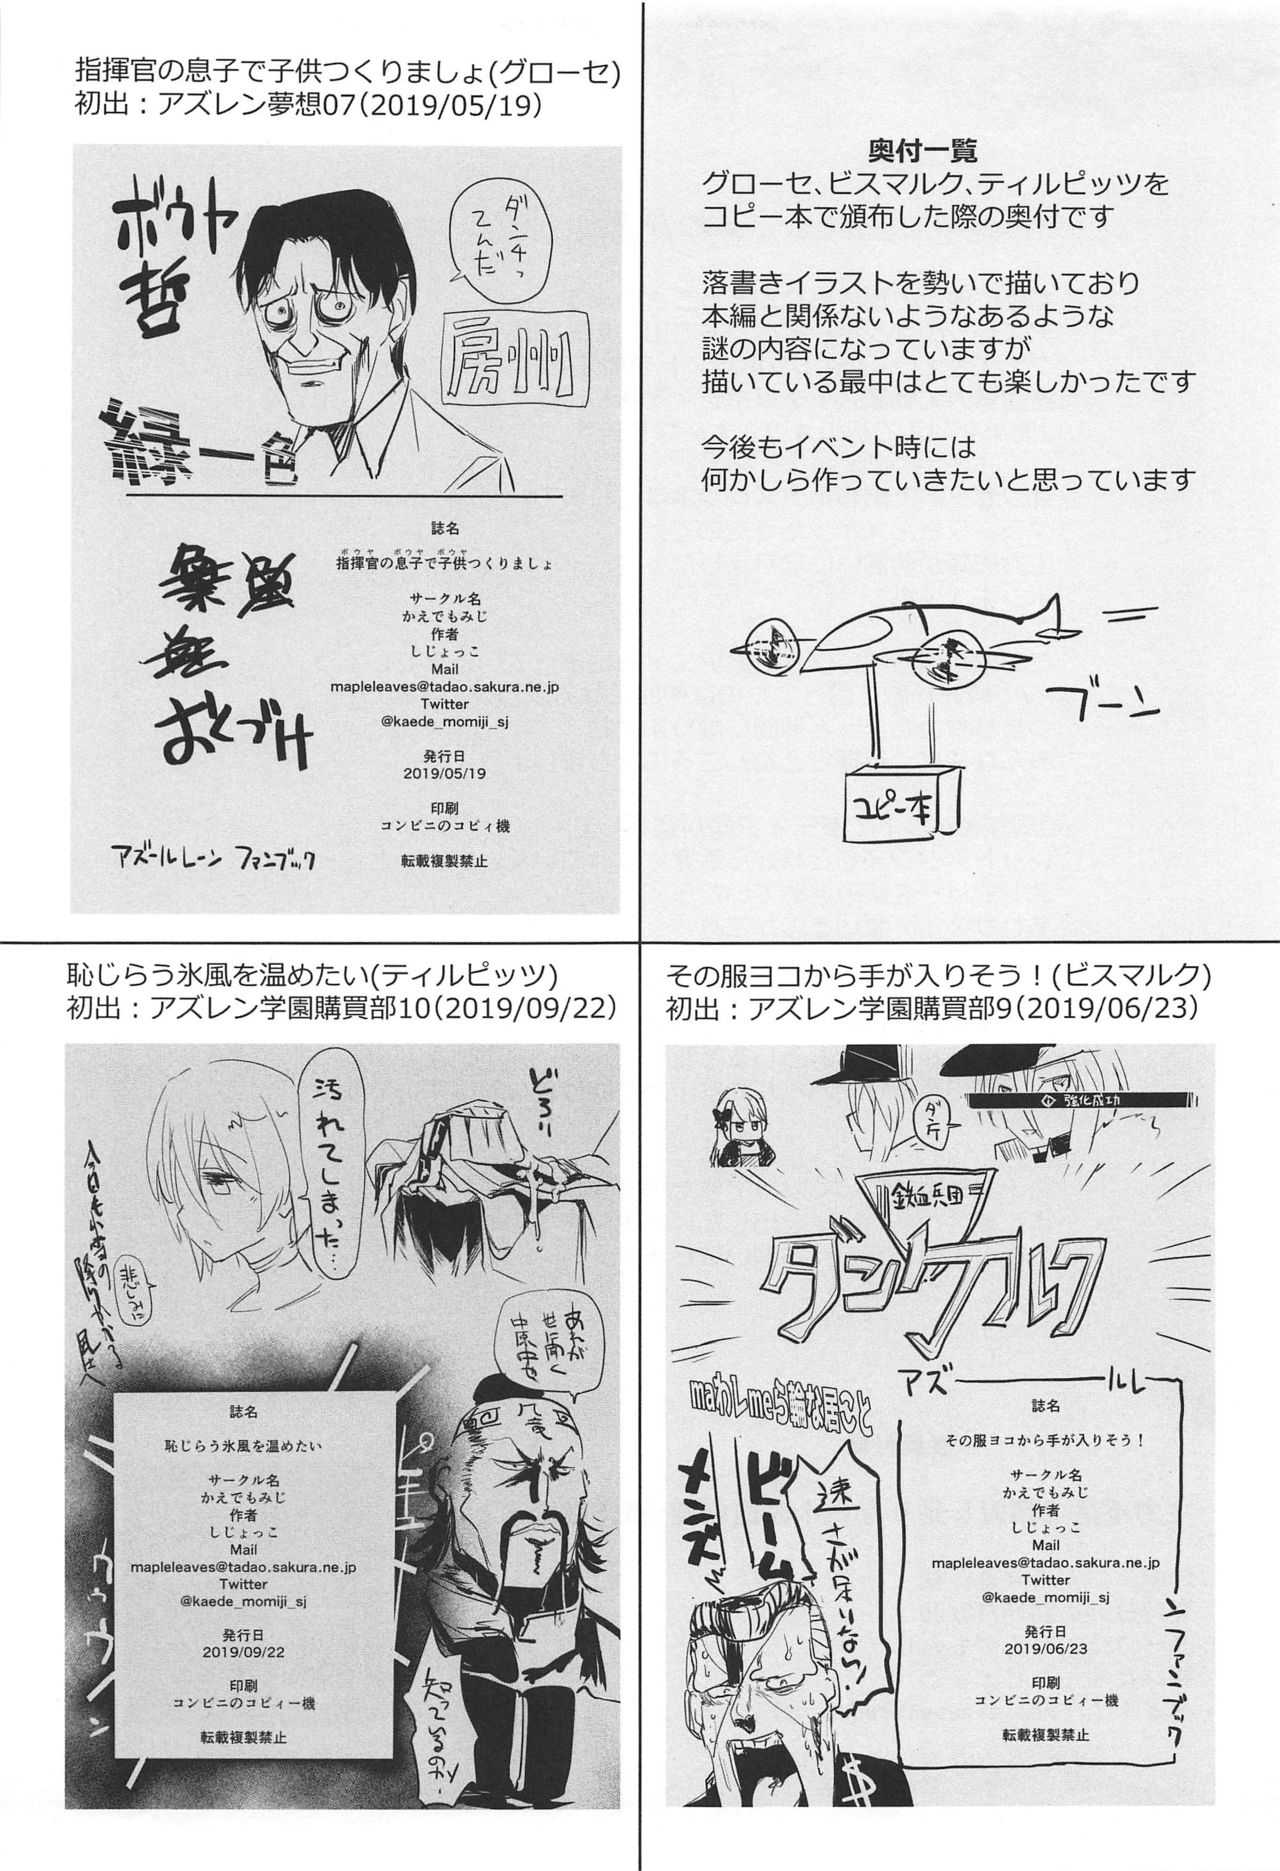 指揮官の息子で子供つくりましょ(グローセ)
初出：アズレン夢想07(2019/05/19)
ボウヤ
哲
ダンチっ
てんだ
房州
緑一色
おくづけ
アズールレーン ファンブック
誌名
ボウヤ ボウヤ ボウヤ
指揮官の息子で子供つくりましょ
サークル名
かえでもみじ
作者
しじょっこ
Mail
mapleleaves@tadao.sakura.ne.jp
Twitter
@kaede_momiji_sj
発行日
2019/05/19
印刷
コンビニのコピィ機
転載複製禁止
奥付一覧
グローセ、ビスマルク、ティルピッツを
コピー本で頒布した際の奥付です
落書きイラストを勢いで描いており
本編と関係ないようなあるような
謎の内容になっていますが
描いている最中はとても楽しかったです
今後もイベント時には
何かしら作っていきたいと思っています
ブーン
コピー本
恥じらう氷風を温めたい(ティルピッツ)
初出：アズレン学園購買部10(2019/09/22)
どろり
汚れてしまった…
悲しみに
今日も小雪の
降りかかる
あれが
世に聞く
中原中也
九竜
知っているのか
誌名
恥じらう氷風を温めたい
サークル名
かえでもみじ
作者
しじょっこ
Mail
mapleleaves@tadao.sakura.ne.jp
Twitter
@kaede_momiji_sj
発行日
2019/09/22
印刷
コンビニのコピィー機
転載複製禁止
その服ヨコから手が入りそう！(ビスマルク)
初出：アズレン学園購買部9(2019/06/23)
強化成功
鉄血兵団
ダンケルク
アズールレーンファンブック
maわしmeら輪な居こと
メンズ
ビーム
速さが足りない!
$
誌名
その服ヨコから手が入りそう！
サークル名
かえでもみじ
作者
しじょっこ
Mail
mapleleaves@tadao.sakura.ne.jp
Twitter
@kaede_momiji_sj
発行日
2019/06/23
印刷
コンビニのコピィー機
転載複製禁止